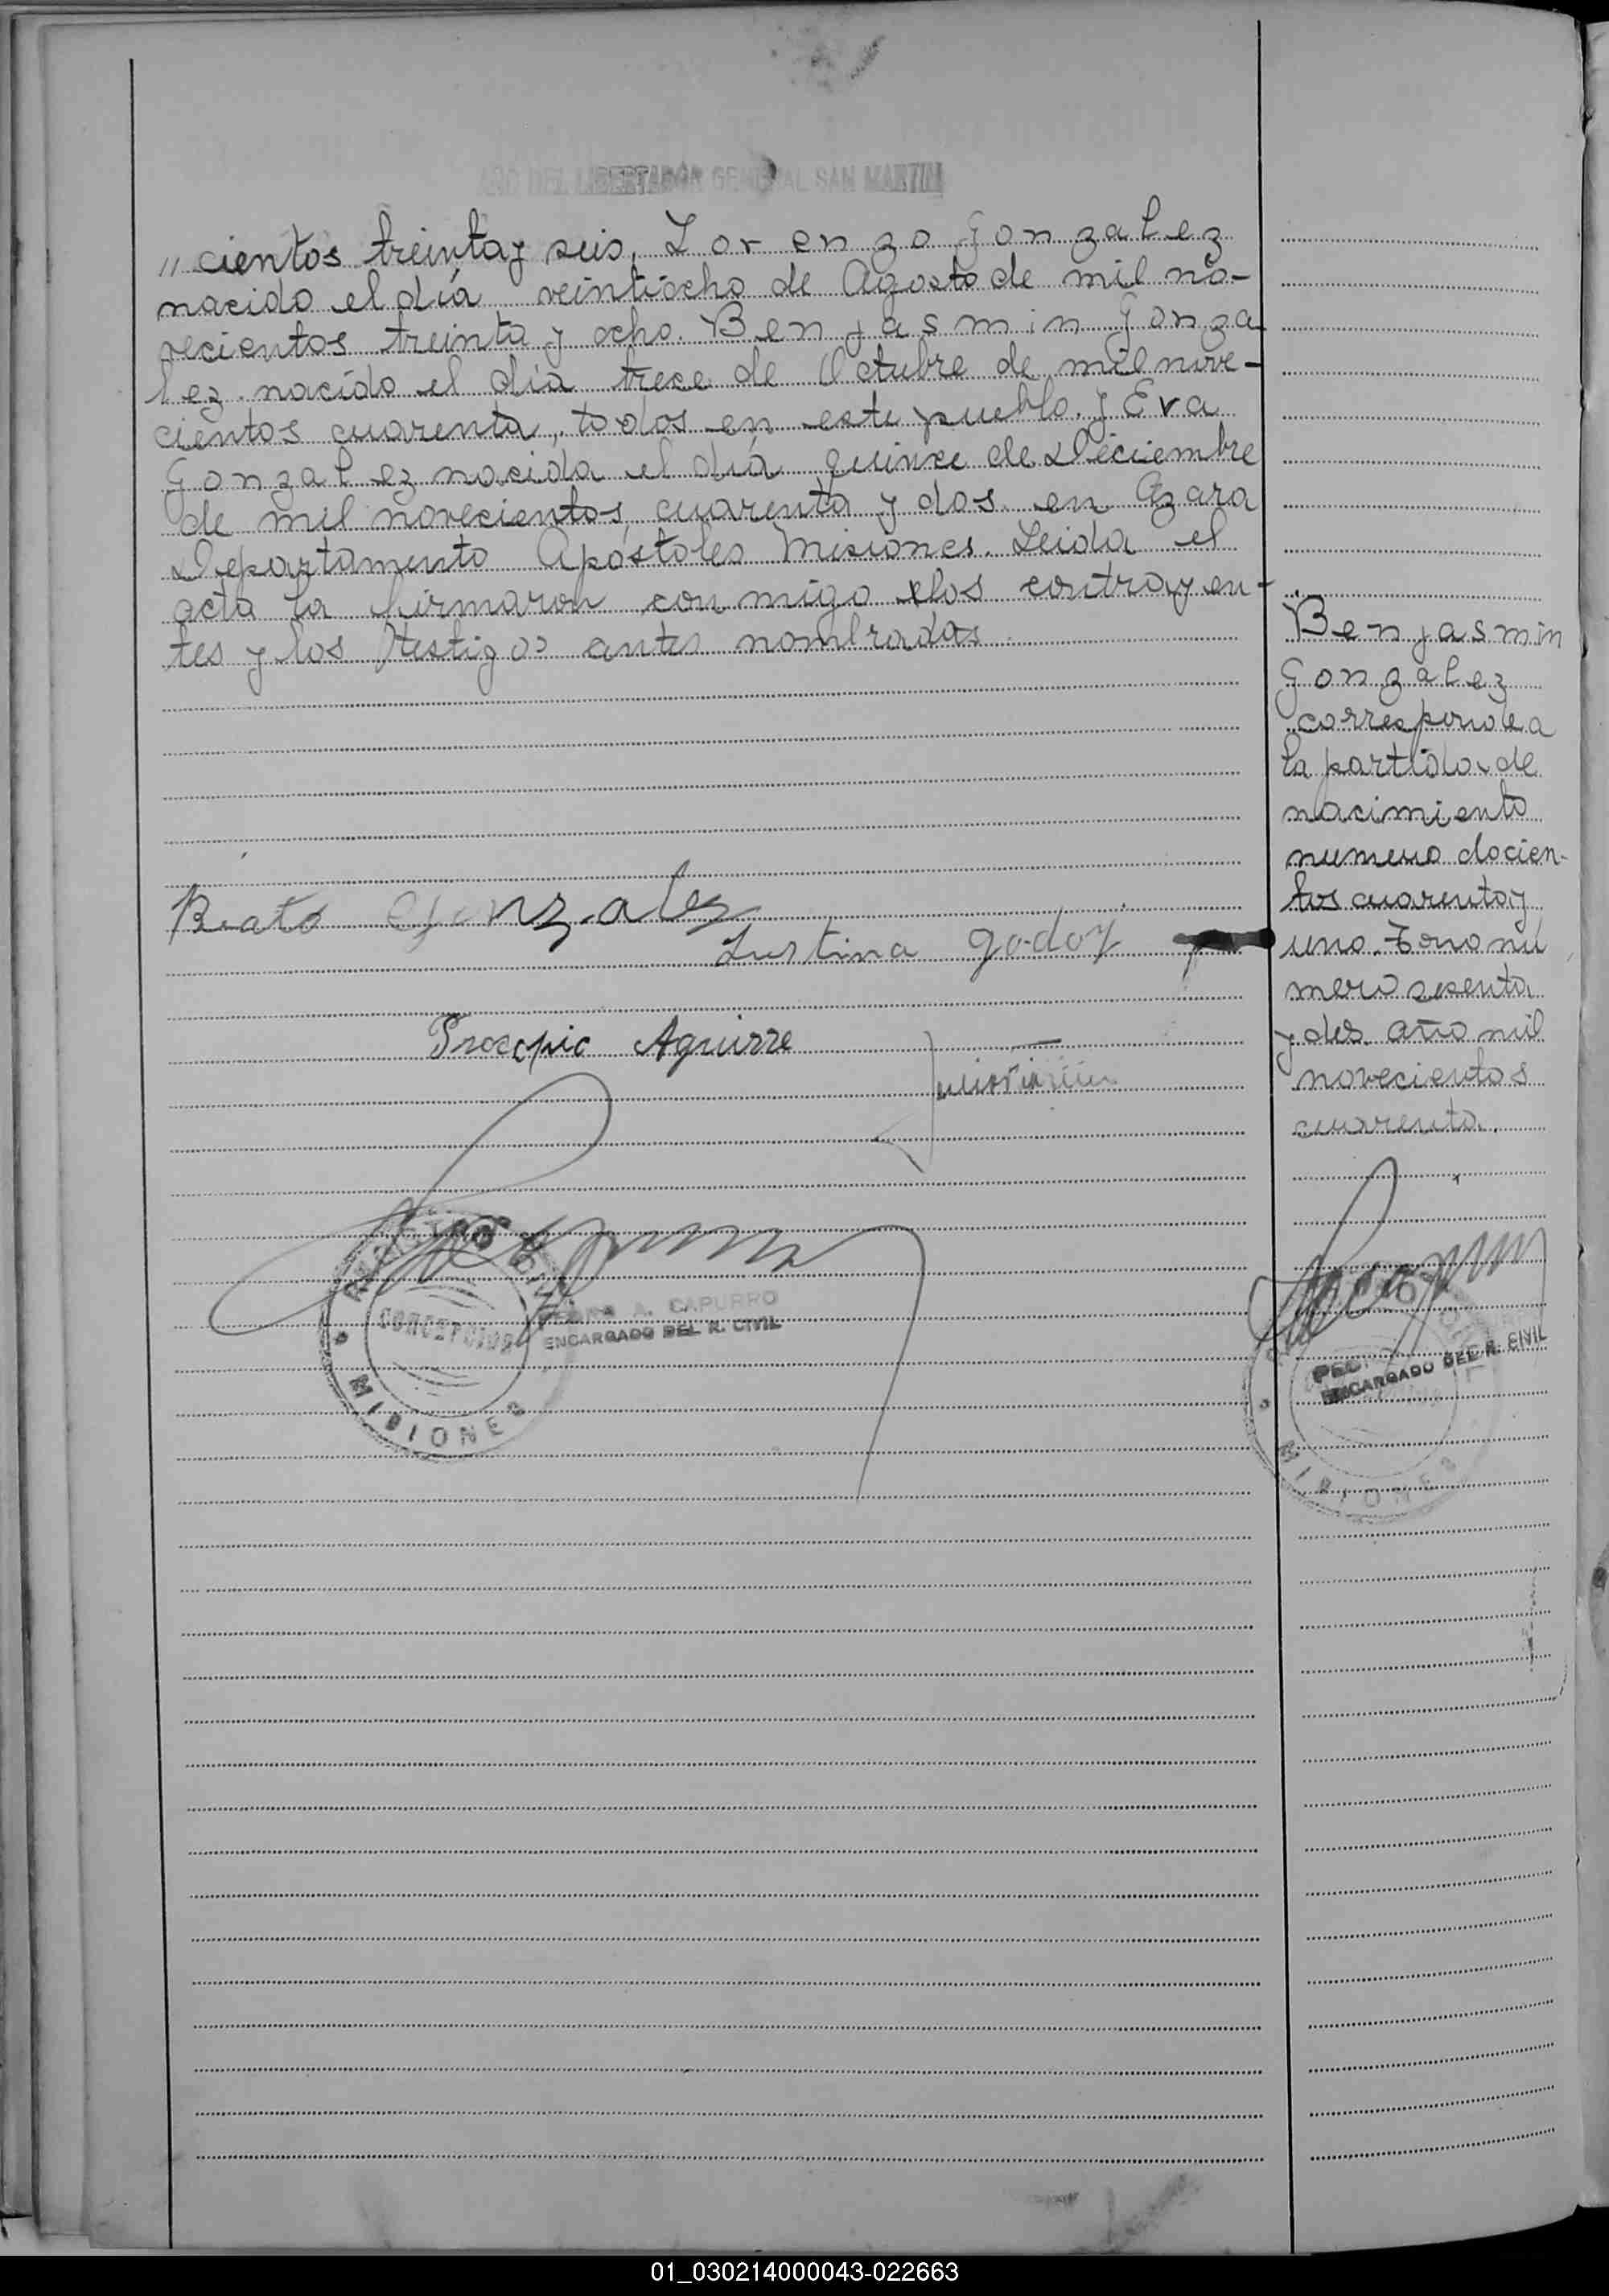 AÑO DEL LIBERTADOR GENERAL SAN MARTIN
,, cientos treinta y seis, Lorenzo Gonzalez
nacido el día veintiocho de Agosto de mil no-
vecientos treinta y ocho. Benjasmin Gonza
lez. nacido el día trece de Octubre de mil nove-
cientos cuarenta, todos en este pueblo. y Eva
Gonzalez nacida el día quince de Diciembre
de mil novecientos cuarenta y dos. en Azara
Departamento Apóstoles Misiones. Leida el
acta la firmaron con migo los contrayen-
tes y los testigos antes nombrados.
Beato Gonzalez
Justina Godoy
Procopio Aguirre
REGISTRO CIVIL
CONCEPCION
MISIONES
PEDRO A. CAPURRO
ENCARGADO DEL R. CIVIL
Benjasmin
Gonzalez
corresponde a
la partida de
nacimiento
numero docien-
tos cuarenta y
uno. Tomo nú
mero sesenta
y dos. año mil
novecientos
cuarenta.
ENCARGADO DEL R. CIVIL
MISIONES
01_030214000043-022663